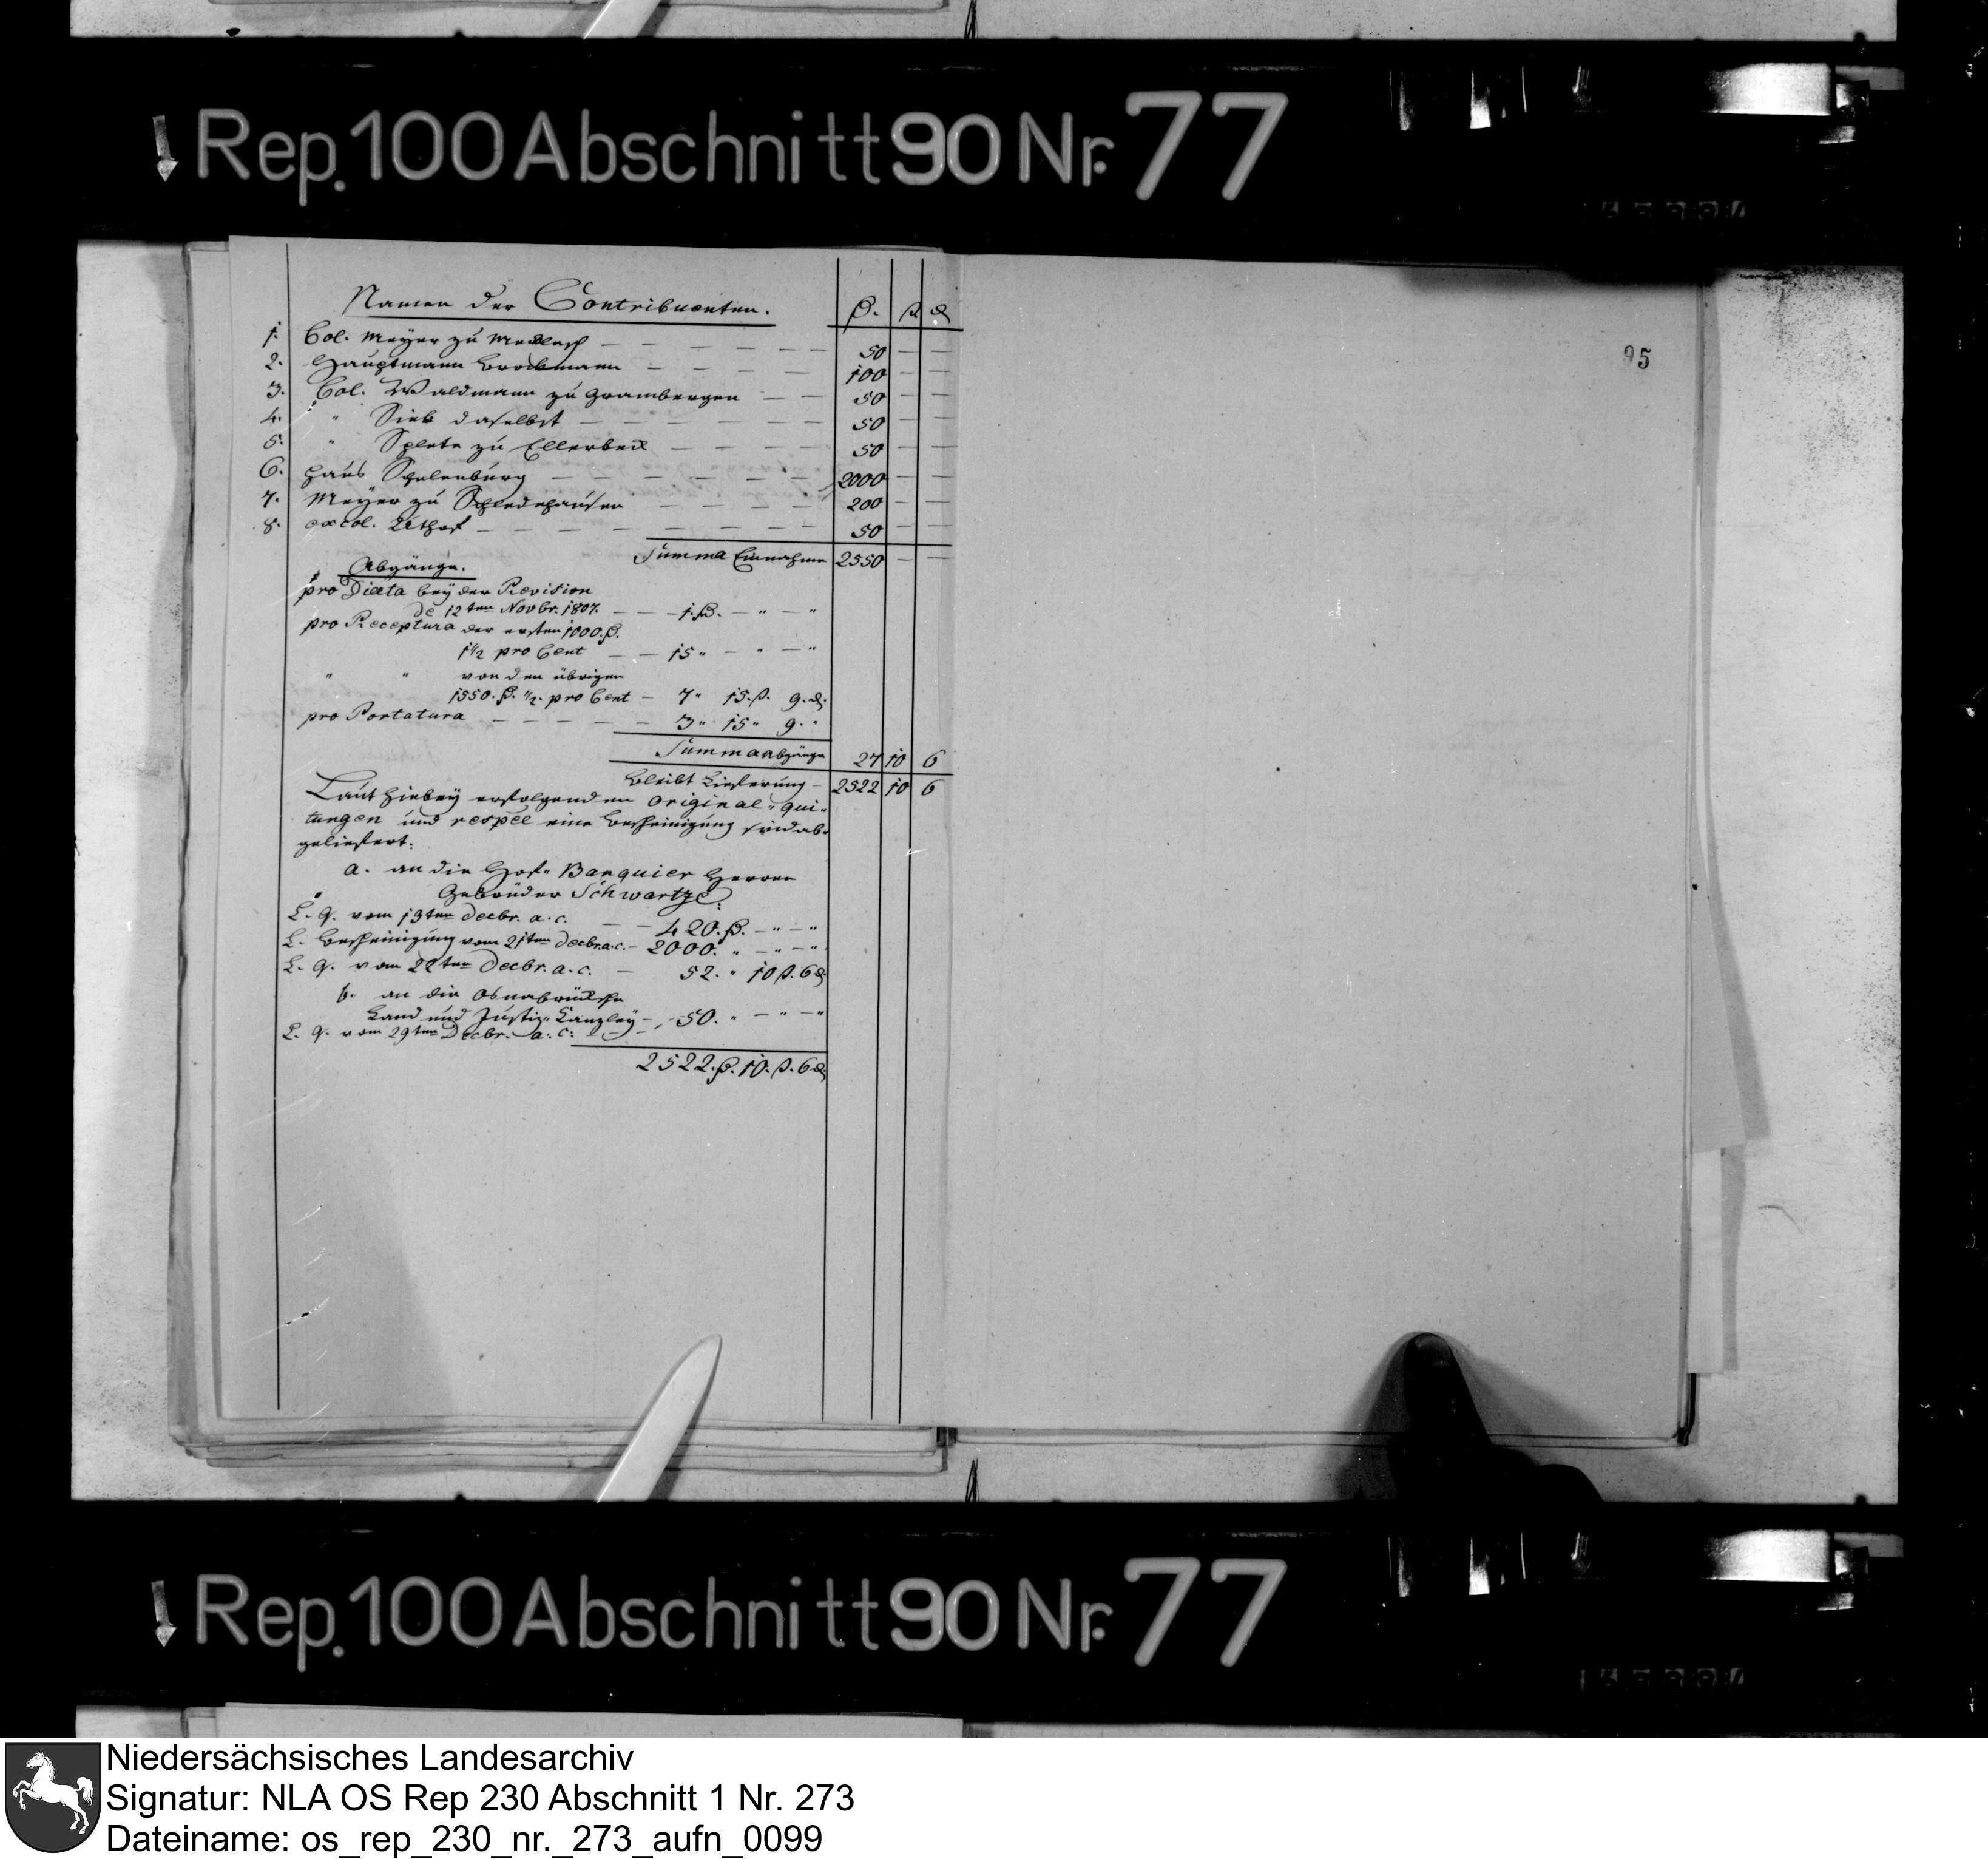 Rep. 100 Abschnitt 90 Nr. 77
Namen der Contribuenten. | ß. | ß | d
1. Col. Meyer zu — — — — — 50 — —
2. Hauptmann Brockmann — — — — 100 — —
3. Col. Waldmann zu Grambergen — — 50 — —
4. " Siek daselbst — — — — — 50 — —
5. " Splete zu Ellerbeck — — — — 50 — —
6. Haus Schelenburg — — — — — 2000 — —
7. Meyer zu Schledehausen — — — — 200 — —
8. excol. Uthof — — — — — 50 — —
Summa Einnahme 2550 — —
Abgänge.
pro Diaeta bey der Revision
de 12ten Novbr. 1807. — — 1. — " — "
pro Receptura der ersten 1000.
1½ pro Cent — — 15 " — " — "
" " von den übrigen
1550. ½. pro Cent — 7 " 15. ß. 9. d.
pro Portatura — — — — — 3 " 15 " 9. "
Summa Abgänge 27 10 6
bleibt Lieferung — 2522 10 6
Laut hiebey erfolgenden Original-Qui-
tungen und respée eine Bescheinigung sind ab-
geliefert:
a. an die Hof- Banquier Herren
Gebrüder Schwartze:
L. Q. vom 19ten Decbr. a. c. — — 420. — " — "
L. Bescheinigung vom 21ten Decbr. a. c. — 2000. " — " — "
L. Q. vom 22ten Decbr. a. c. — 52. " 10 ß. 6 d.
b. an die Osnabrücksche
Land und Justiz-Canzley — 50. " — " — "
L. Q. vom 29ten Decbr. a. c. — —
2522. 10. ß. 6 d.
95
Rep. 100 Abschnitt 90 Nr. 77
Niedersächsisches Landesarchiv
Signatur: NLA OS Rep 230 Abschnitt 1 Nr. 273
Dateiname: os_rep_230_nr._273_aufn_0099